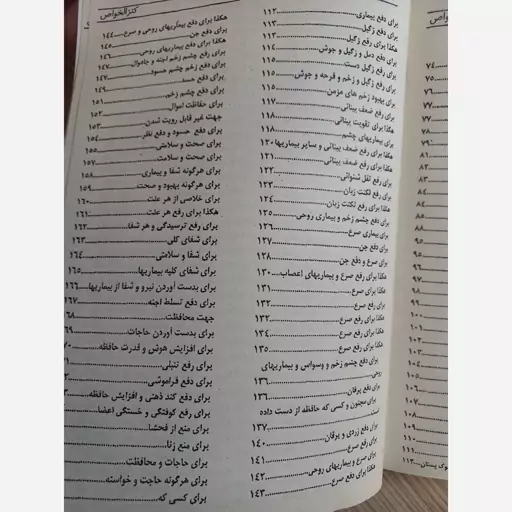 کنزالخواص
برای دفع بیماری...۱۱۲
برای دفع زگیل...۱۱۳
هکذا برای رفع زگیل...۱۱۴
برای دفع دمل و زگیل و جوش...۱۱۴
برای رفع زگیل دست...۱۱۵
برای رفع زگیل و زخم و قرحه و جوش...۱۱۵
برای بهبود زخم های مزمن...۱۱۵
برای رفع ضعف بینائی...۱۱۷
برای تقویت بینائی...۱۱۸
برای بیماریهای چشم...۱۱۸
هکذا برای رفع ضعف بینائی و سایر بیماریها۱۲۰
برای رفع ضعف بینائی...۱۲۱
برای رفع ثقل شنوائی...۱۲۲
برای رفع لکنت زبان...۱۲۳
هکذا برای رفع لکنت زبان...۱۲۴
برای دفع چشم زخم و بیماری روحی...۱۲۵
برای بیماری صرع...۱۲۶
برای دفع جن...۱۲۷
برای صرع و دفع جن...۱۲۸
هکذا برای رفع صرع و بیماریهای اعصاب...۱۳۰
هکذا برای صرع...۱۳۱
برای رفع صرع...۱۳۲
هکذا برای رفع صرع...۱۳۲
هکذا برای رفع صرع...۱۳۴
هکذا برای رفع صرع...۱۳۵
برای دفع چشم زخم و وسواس و بیماریهای
روحی...۱۳۶
برای دفع یرقان...۱۳۶
برای مجنون و کسی که حافظه از دست داده
است...۱۳۷
برای دفع زردی و یرقان...۱۴۰
برای رفع صرع...۱۴۱
برای صرع و بیماریهای روحی...۱۴۲
هکذا برای دفع صرع...۱۴۳
هکذا برای دفع بیماریهای روحی و صرع...۱۴۴
برای دفع جن...۱۴۵
هکذا برای دفع بیماریهای روحی...۱۴۶
برای رفع چشم زخم اجنه و جاموال...۱۴۷
برای دفع چشم زخم حسود...۱۴۷
برای دفع حسد...۱۴۹
برای دفع چشم زخم...۱۵۱
برای حفاظت اموال...۱۵۲
جهت غیر قابل رویت شدن...۱۵۳
برای دفع حسود و دفع نظر...۱۵۴
برای صحت و سلامتی...۱۵۵
برای صحت و سلامت...۱۵۷
برای هرگونه شفا و بیماری...۱۵۸
برای هرگونه بهبود و صحت...۱۵۹
برای خلاصی از هر علت...۱۶۰
هکذا برای رفع هر علت...۱۶۱
برای رفع ترسیدگی و هر شفا...۱۶۲
برای شفای کلی...۱۶۳
برای شفا و سلامتی...۱۶۴
برای شفای کلیه بیماریها...۱۶۵
برای بدست آوردن نیرو و شفا از بیماریها...۱۶۶
برای دفع تسلط اجنه...۱۶۷
جهت محافظت...۶۸
برای بدست آوردن حاجات...۶۹
برای افزایش هوش و قدرت حافظه...۷۰
برای رفع تنبلی...
برای دفع فراموشی...
برای دفع کند ذهنی و افزایش حافظه...
برای رفع کوفتگی و خستگی اعضا...
برای منع از فحشا...
برای منع زنا...
برای حاجات و محافظت...
برای هرگونه حاجت و خواسته...
برای کسی که